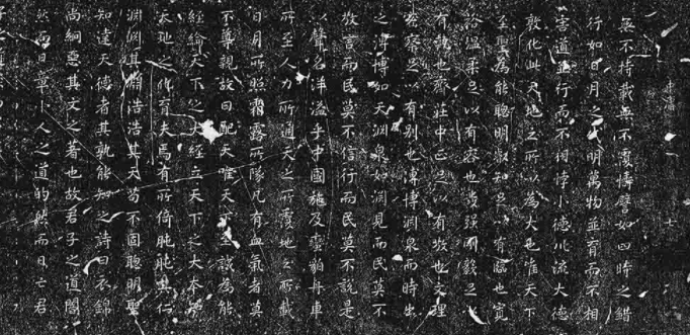 無不持載無不覆幬譬如四時之錯
行如日月之代明萬物並育而不相
害道並行而不相悖小德川流大德
敦化此天地之所以為大也唯天下
至聖為能聰明睿知足以有臨也寬
裕溫柔足以有容也發強剛毅足以
有執也齊莊中正足以有敬也文理
密察足以有別也溥博淵泉而時出
之溥博如天淵泉如淵見而民莫不
敬言而民莫不信行而民莫不說是
以聲名洋溢乎中國施及蠻貊舟車
所至人力所通天之所覆地之所載
日月所照霜露所隊凡有血氣者莫
不尊親故曰配天唯天下至誠為能
經綸天下之大經立天下之大本知
天地之化育夫焉有所倚肫肫其仁
淵淵其淵浩浩其天苟不固聰明聖
知達天德者其孰能知之詩曰衣錦
尚絅惡其文之著也故君子之道闇
然而日章小人之道的然而日亡君